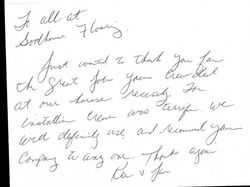 To all at
Goodhome Flooring.
Just wanted to thank you for
the great job your crew did
at our house recently. The
installation crew was terrific. We
will definitely use and recommend your
company to any one. Thanks again